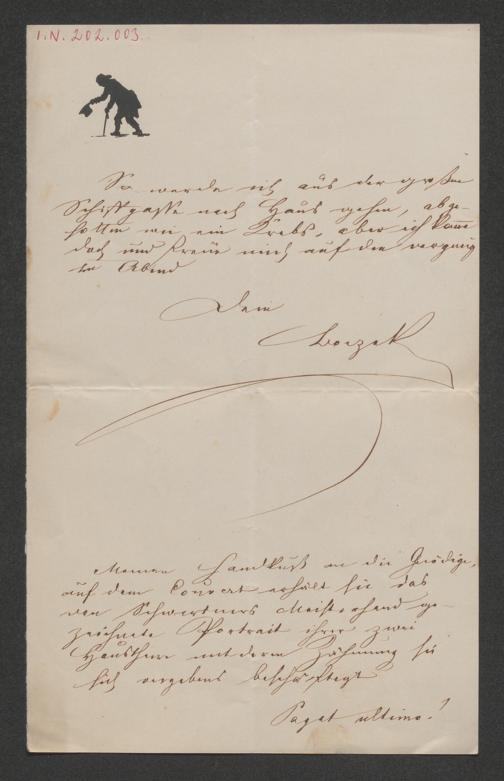 I.N. 202.003
So werde ich aus der großen
Schiffgasse nach Haus gehen, abge-
sotten wie ein Krebs, aber ich komme
doch und freue mich auf den vergnüg
ten Abend
Dein
Meinen Handkuß an die Gnädige,
auf dem Couvert erhält sie das
von Schwertners Meisterhand ge-
zeichnete Portrait ihrer zwei
Hausthiere mit deren Zähmung sie
sich vergebens beschäftigt
ultimo!